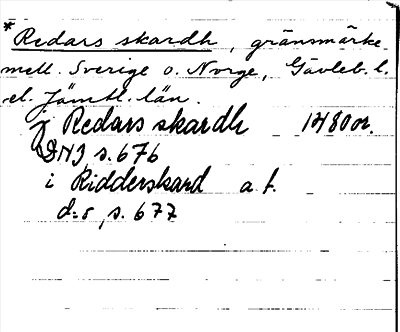 *Redars skardh, gränsmärke
mell. Sverige o. Norge, Gävleb. l.
el. Jämtl. län.
i Redars skardh 1480 or.
DN3, s. 676
i Ridderskard a. t.
d:o, s. 677